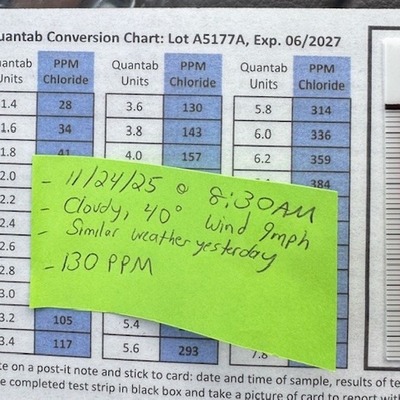 uantab Conversion Chart: Lot A5177A, Exp. 06/2027
uantab Units PPM Chloride Quantab Units PPM Chloride Quantab Units PPM Chloride
1.4 28 3.6 130 5.8 314
1.6 34 3.8 143 6.0 336
1.8 41 4.0 157 6.2 359
2.0 384
- 11/24/25 @ 8:30AM
- Cloudy, 40° Wind 9mph
- Similar weather yesterday
- 130 PPM
2.2
2.4
2.6
2.8
3.0
3.2 105 5.4
3.4 117 5.6 293 7.8
te on a post-it note and stick to card: date and time of sample, results of te
e completed test strip in black box and take a picture of card to report with